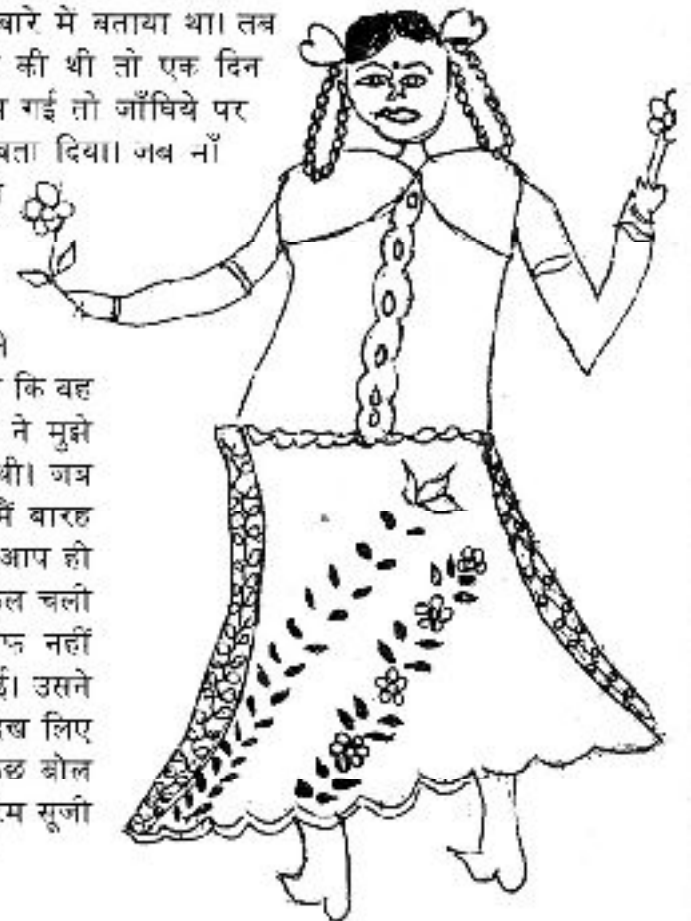 बारे में बताया था। तब
की थी तो एक दिन
गई तो जाँघिये पर
बता दिया। जब माँ
कि वह
ने मुझे
थी। जब
मैं बारह
आप ही
चली
नहीं
उसने
लिए
बोल
सूजी